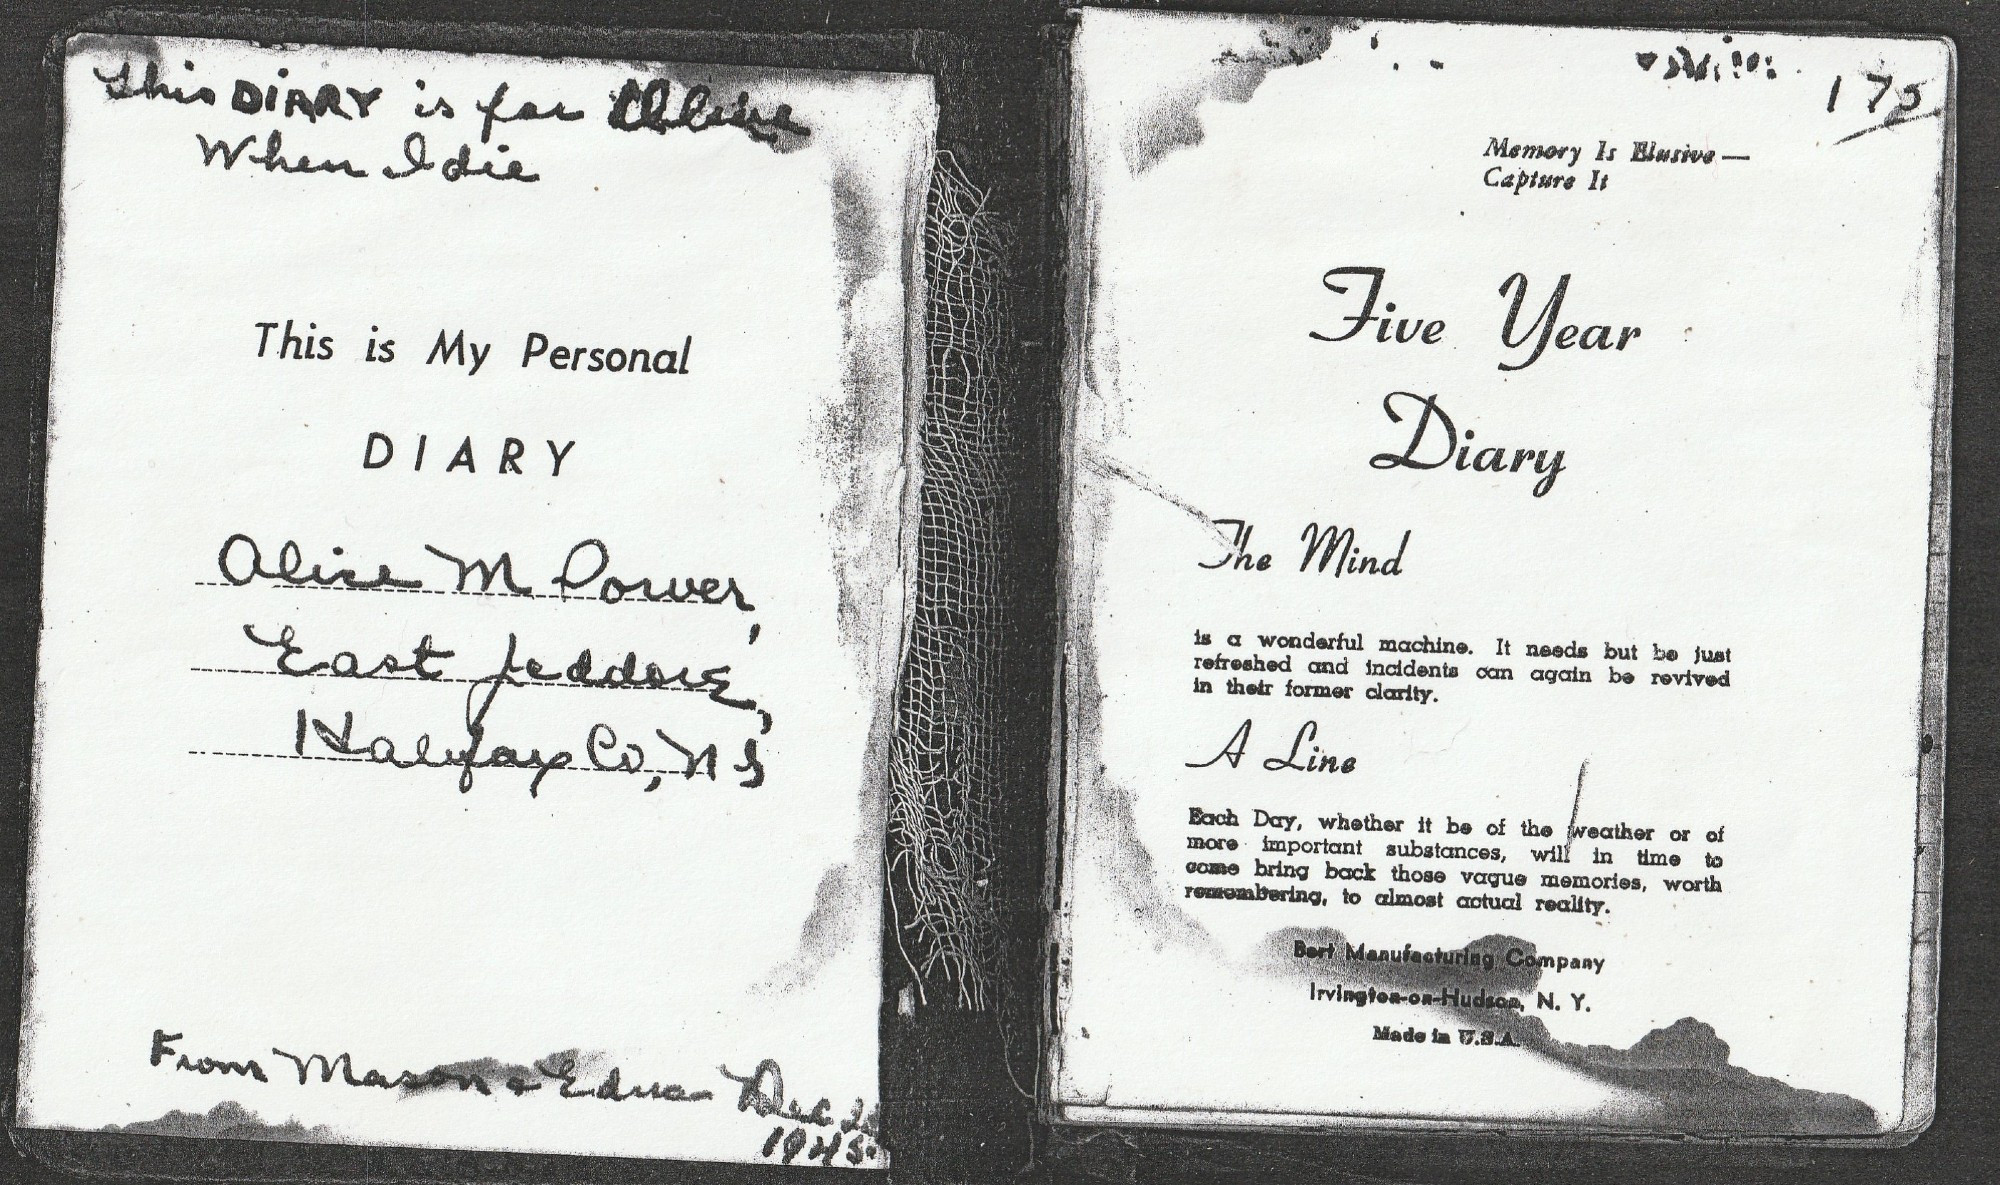 This DIARY is for
When I die
This is My Personal
DIARY
Alice M Power,
East Jeddore,
Halifax Co, N S
From Mason & Edna Dec 25
1945
175
Memory Is Elusive—
Capture It
Five Year
Diary
The Mind
is a wonderful machine. It needs but be just
refreshed and incidents can again be revived
in their former clarity.
A Line
Each Day, whether it be of the weather or of
more important substances, will in time to
come bring back those vague memories, worth
remembering, to almost actual reality.
Bert Manufacturing Company
Irvington-on-Hudson, N. Y.
Made in U.S.A.